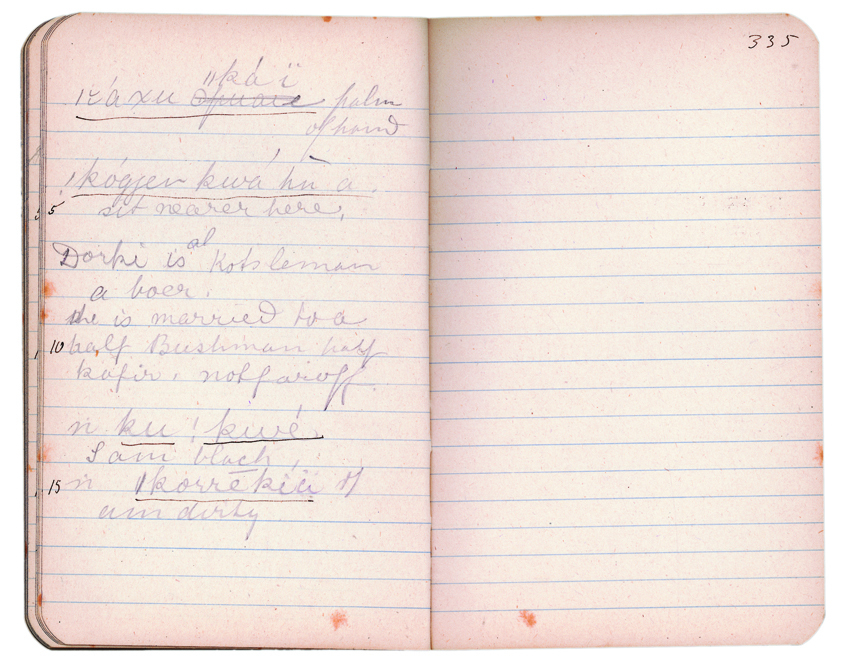 ǁká ï
palm
of hand
kógjen kwá hǹ a
5 sit nearer here,
Dorki is al Kotsleman
a boer.
she is married to a
10 half Bushman half
kafir. not far off.
n ku ! kwé
I am black,
15 n |korrekïï
am dirty
335